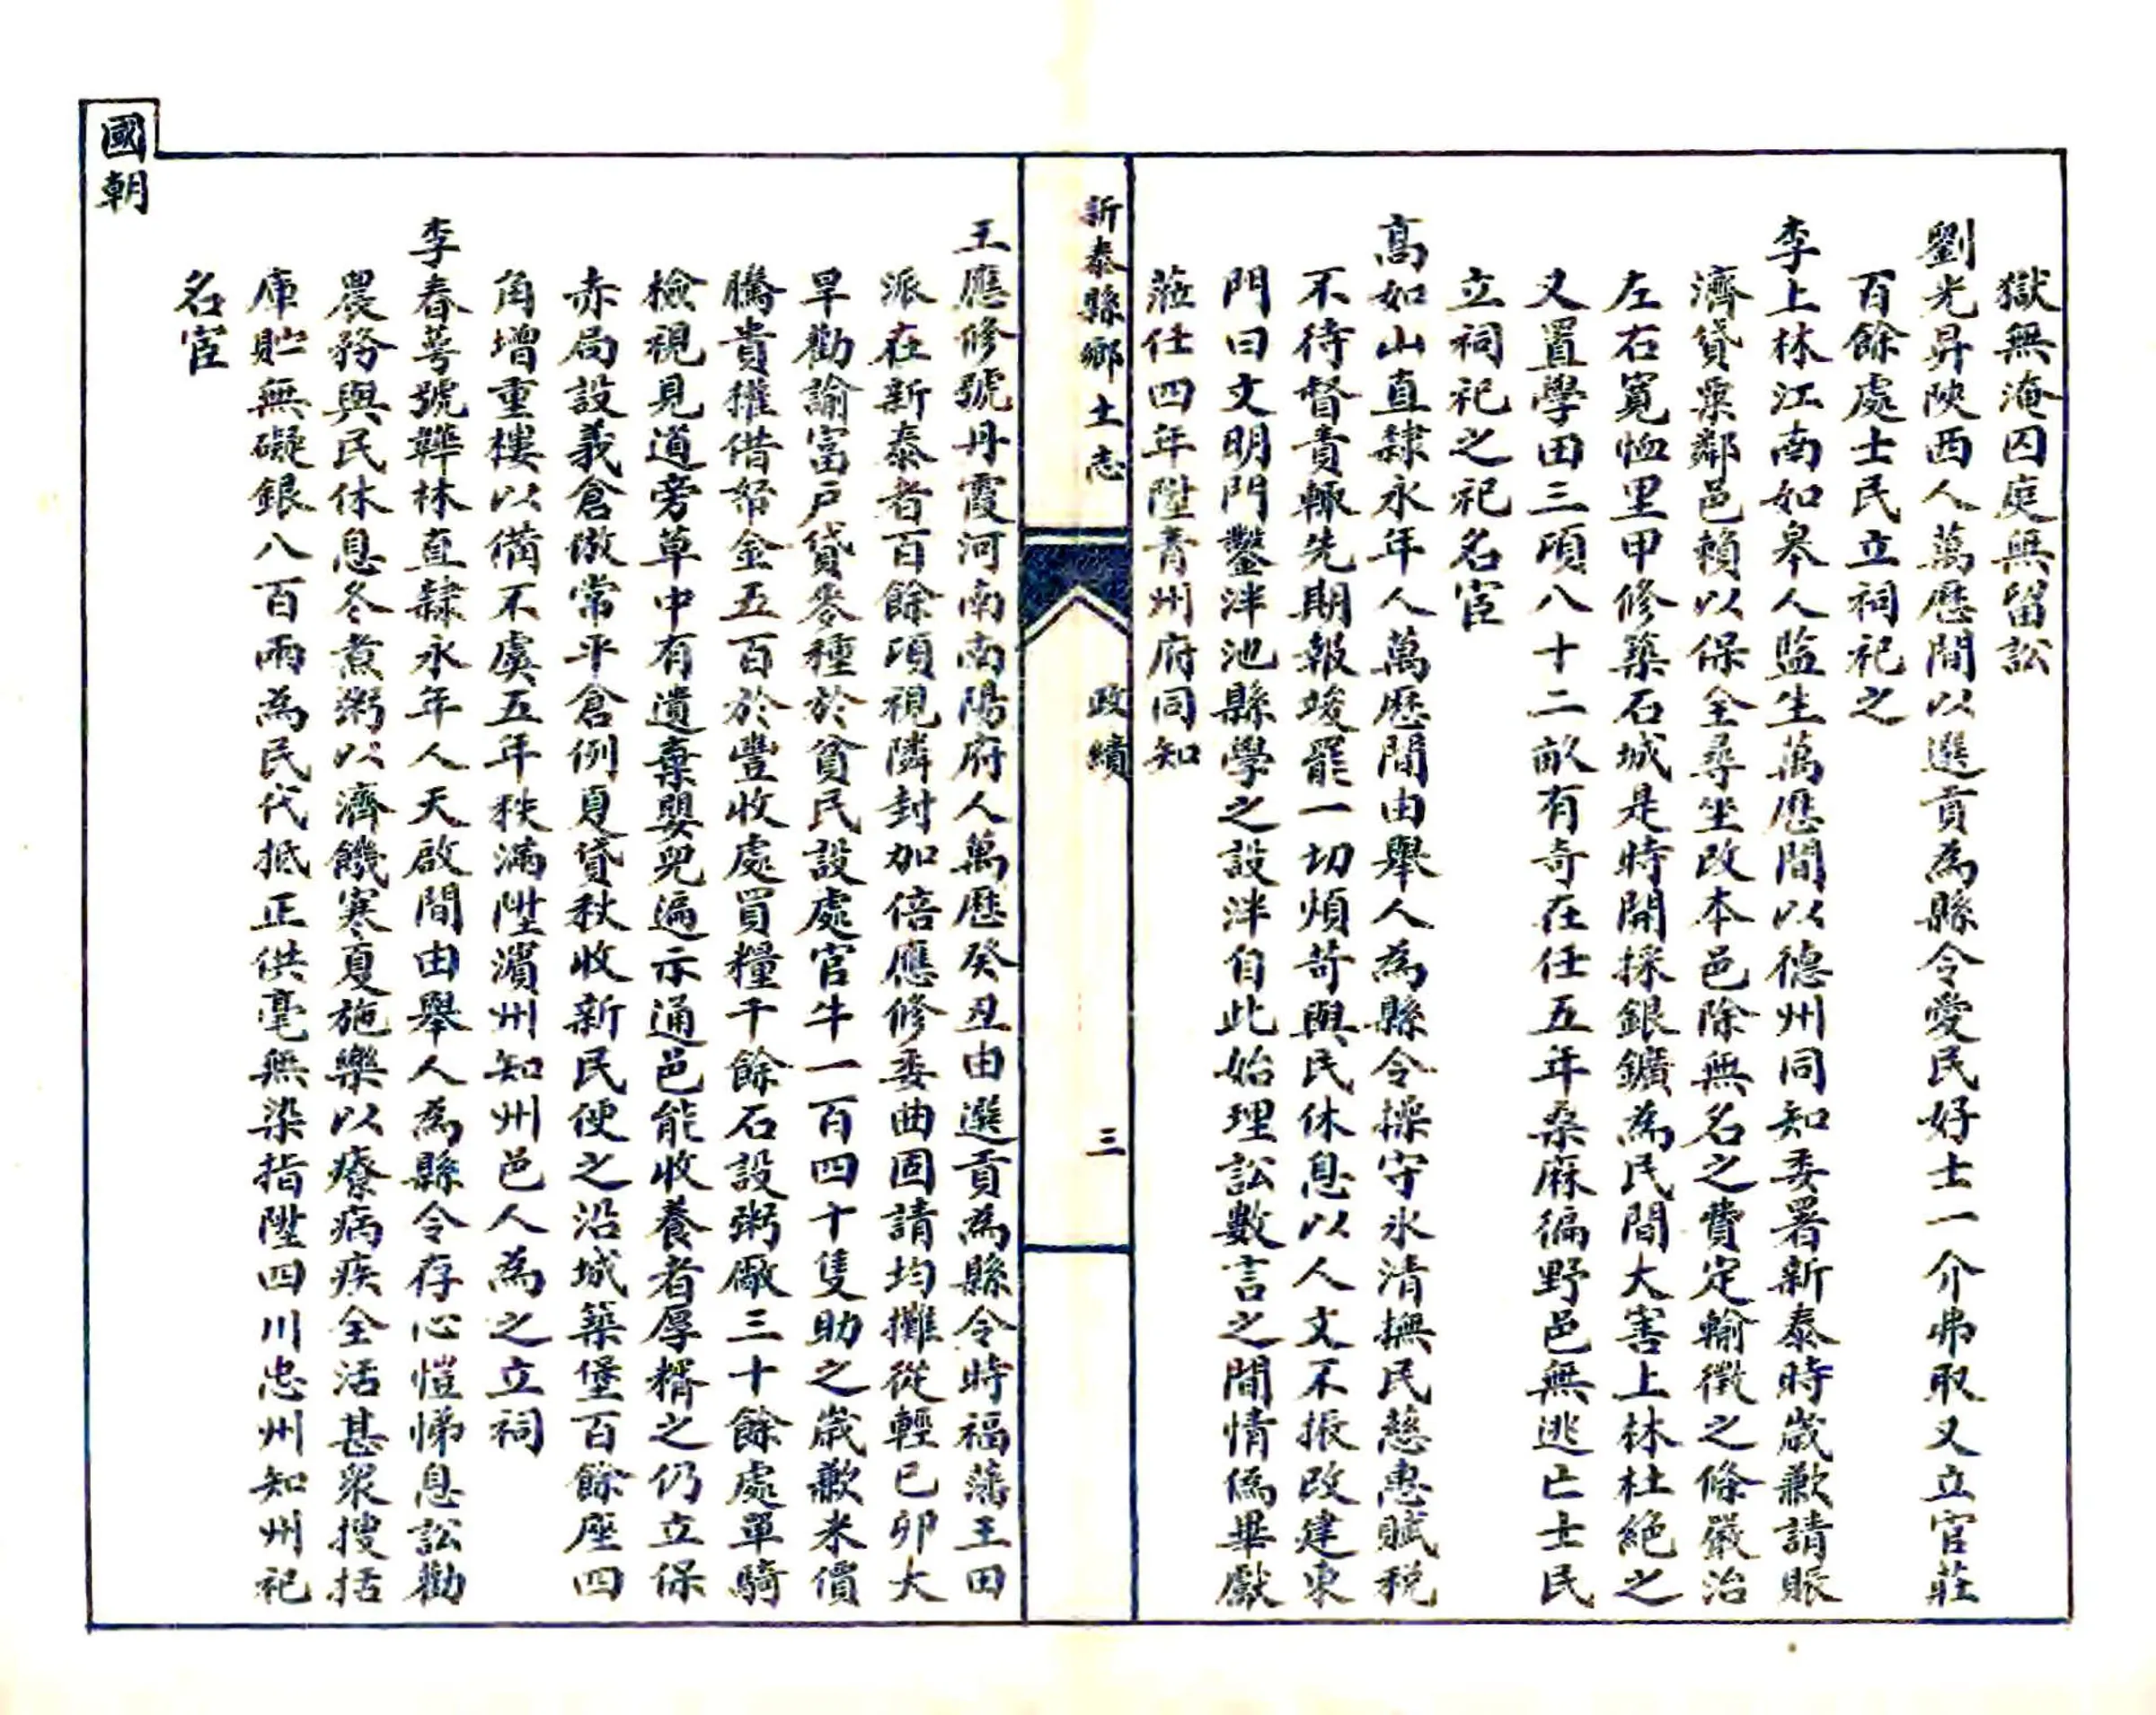 獄無淹囚庭無留訟
劉光昇陝西人萬歷間以選貢為縣令愛民好士一介弗取又立官莊
百餘處士民立祠祀之
李上林江南如皋人監生萬歷間以德州同知委署新泰時歲歉請賑
濟貸粟鄰邑賴以保全尋坐改本邑除無名之費定輸徵之條嚴治
左右寬恤里甲修築石城是時開採銀鑛為民間大害上林杜絕之
又置學田三項八十二畝有奇在任五年桑麻徧野邑無逃亡士民
立祠祀之祀名宦
高如山直隸永年人萬歷間由舉人為縣令操守氷清撫民慈惠賦税
不待督責輒先期報竣罷一切煩苛與民休息以人文不振改建東
門曰文明門鑿泮池縣學之設泮自此始理訟數言之間情僞畢獻
蒞任四年陞青州府同知
新泰縣鄉土志
政績
三
王應修號丹霞河南南陽府人萬歷癸丑由選貢為縣令時福藩王田
派在新泰者百餘項視隣封加倍應修委曲固請均攤從輕已卯大
旱勸諭富戶貸麥種於貧民設處官牛一百四十隻助之歲歉米價
騰貴搉借帑金五百於豐收處買糧千餘石設粥廠三十餘處單騎
檢視見道旁草中有遺棄嬰兒遍示通邑能收養者厚糈之仍立保
赤局設義倉倣常平倉例夏貸秋收新民便之沿城築堡百餘座四
角增重樓以備不虞五年秩滿陞濱州知州邑人為之立祠
李春萼號韡林直隸永年人天啟間由舉人為縣令存心愷悌息訟勸
農務與民休息冬煮粥以濟饑寒夏施藥以療病疾全活甚衆搜括
庫貯無礙銀八百兩為民代抵正供毫無染指陞四川忠州知州祀
名宦
國朝